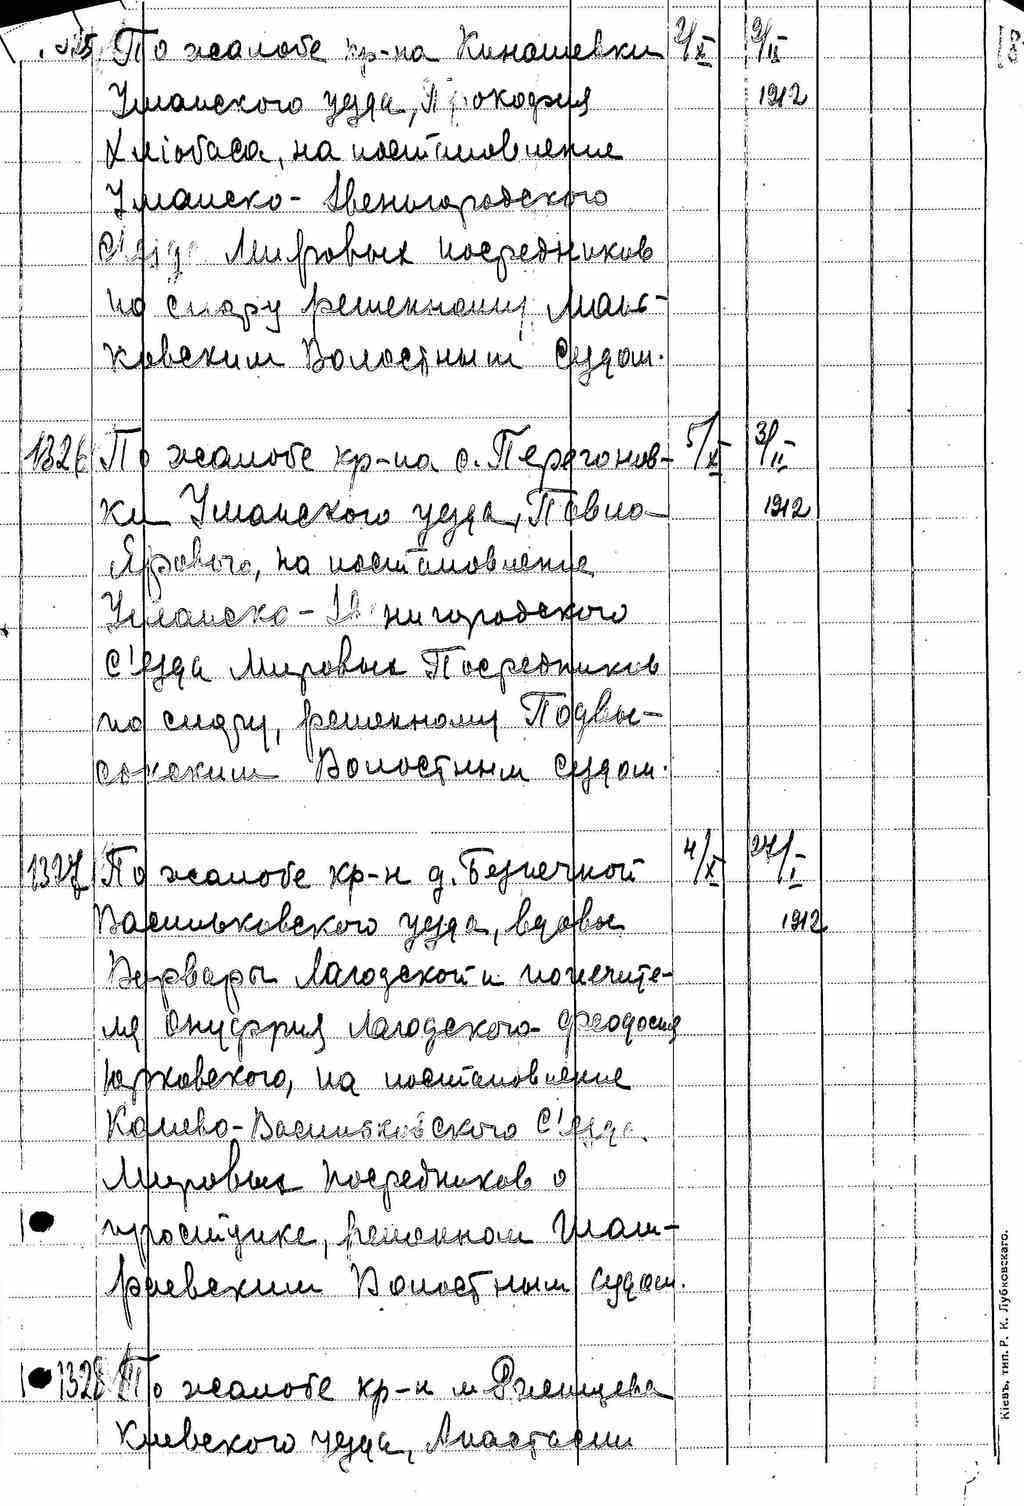 По жалобе кр-на Кинашевки 2/XI 9/II
Уманского уезда, Прокофия 1912
Хліобаса, на постановление
Уманско-Звенигородского
С'езда Мировых посредников
по спору решенному Мань-
ковским Волостным Судом.
1326 По жалобе кр-на с. Перегонов- 5/XI 3/II
ки Уманского уезда, Павла 1912
Ярового, на постановление
Уманско-Звенигородского
С'езда Мировых Посредников
по спору, решенному Подвы-
соцким Волостным Судом.
1327 По жалобе кр-н д. Безпечной 4/XI 27/I
Васильковского уезда, вдовы 1912
Варвары Лагодской и попечите-
ля Онуфрия Лагодского-Феодосия
Юрковского, на постановление
Киево-Васильковского С'езда
Мировых посредников о
проступке, решенном Шам-
раевским Волостным Судом.
1328 По жалобе кр-н м. Ржищева
Киевского уезда, Анастасии
Кіевъ, тип. Р. К. Лубковскаго.